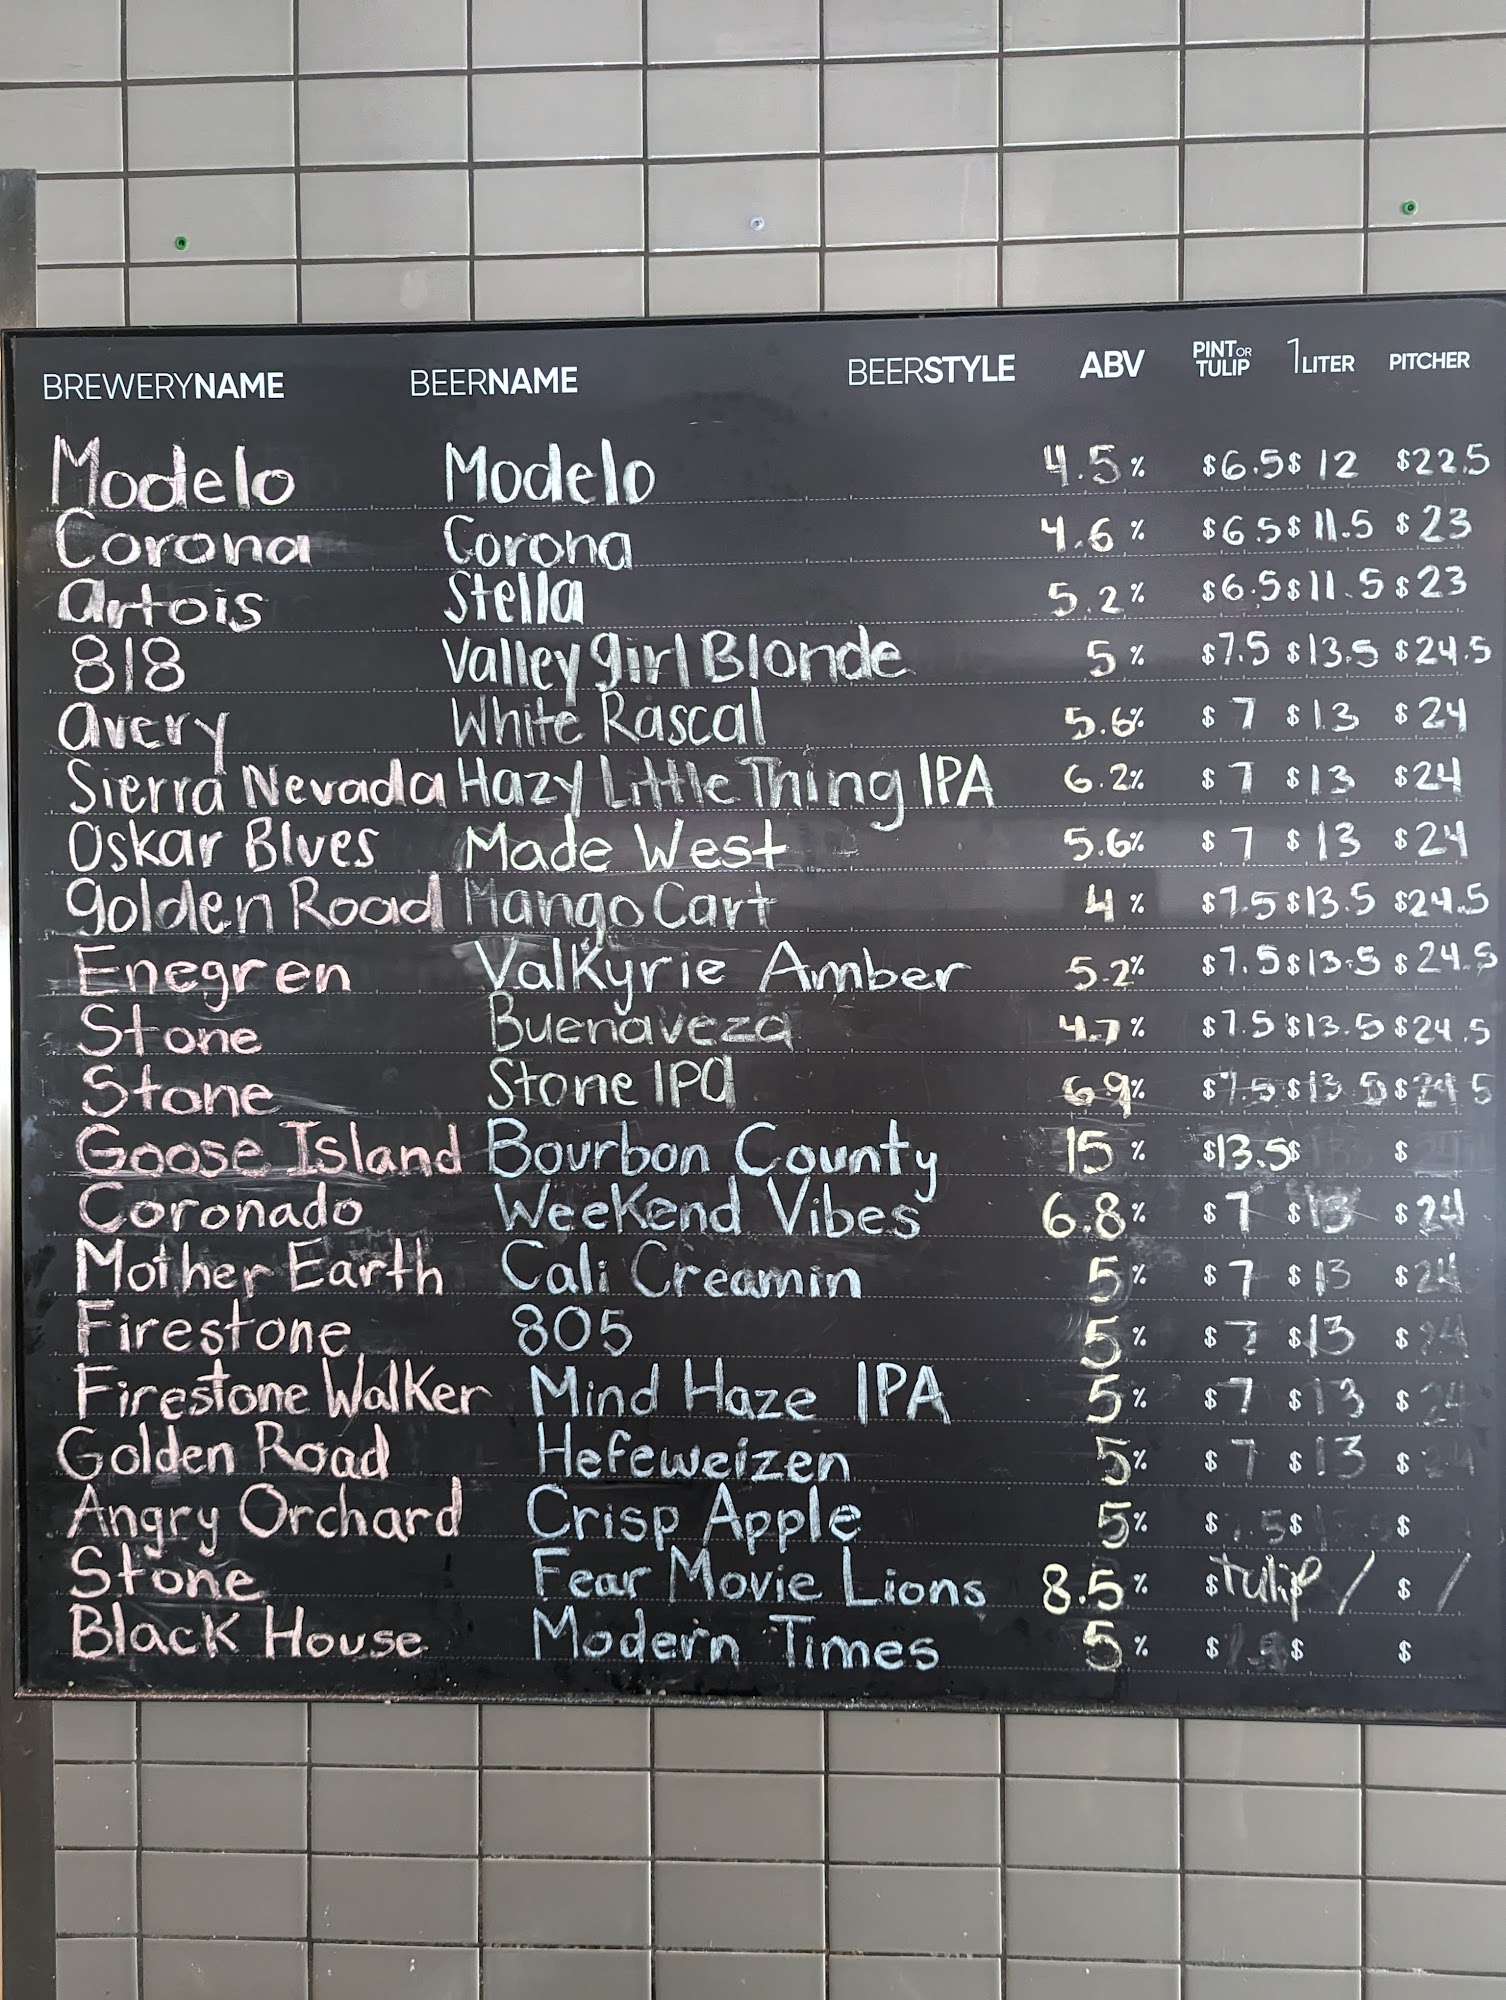 BREWERYNAME BEERNAME BEERSTYLE ABV PINT OR TULIP 1 LITER PITCHER
Modelo Modelo 4.5% $6.5 $12 $22.5
Corona Corona 4.6% $6.5 $11.5 $23
Artois Stella 5.2% $6.5 $11.5 $23
818 Valley girl Blonde 5% $7.5 $13.5 $24.5
Avery White Rascal 5.6% $7 $13 $24
Sierra Nevada Hazy Little Thing IPA 6.2% $7 $13 $24
Oskar Blues Made West 5.6% $7 $13 $24
golden Road Mango Cart 4% $7.5 $13.5 $24.5
Enegren Valkyrie Amber 5.2% $7.5 $13.5 $24.5
Stone Buenaveza 4.7% $7.5 $13.5 $24.5
Stone Stone IPA 6.9% $7.5 $13.5 $24.5
Goose Island Bourbon County 15% $13.5 $ $
Coronado Weekend Vibes 6.8% $7 $13 $24
Mother Earth Cali Creamin 5% $7 $13 $24
Firestone 805 5% $7 $13 $24
Firestone Walker Mind Haze IPA 5% $7 $13 $24
Golden Road Hefeweizen 5% $7 $13 $
Angry Orchard Crisp Apple 5% $ $ $
Stone Fear Movie Lions 8.5% $tulip $ / $ /
Black House Modern Times 5% $ $ $